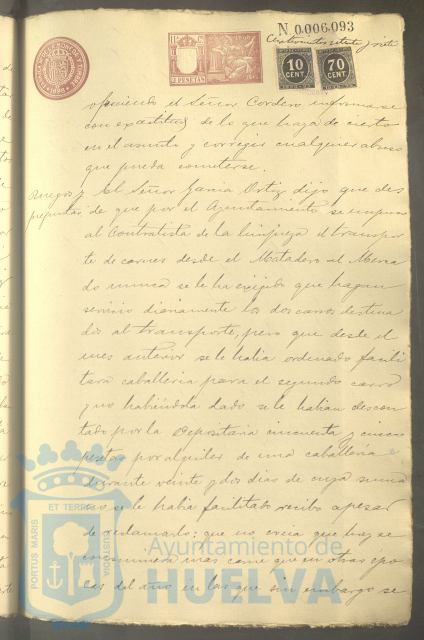 N. 0.006,093
Cuatrocientos setenta y siete
11ª C
2 PESETAS
10 CENT.
70 CENT.
ofreciendo el Señor Cordero informarse
con exactitud de lo que haya de cierto
en el asunto y corregir cualquier abuso
que pueda cometerse.
Ruegos y preguntas
El Señor Garcia Ortiz dijo que des
de que por el Ayuntamiento se impuso
al Contratista de la limpieza el transpor
te de carnes desde el Matadero al Merca
do nunca se le ha exijido que hagan
servicio diariamente los dos carros destina
dos al transporte, pero que desde el
mes anterior se le habia ordenado facili
tara caballeria para el segundo carro
y no habiéndola dado se le habian descon
tado por la Depositaria cincuenta y cinco
pesetas por alquiler de una caballeria
durante veinte y dos dias de cuya suma
no se le habia facilitado recibo apesar
de reclamarlo: que no creia que hoy se
consumiera mas carne que en otras épo
cas del año en las que sin embargo se
ET TERRAE
PORTUS MARIS
CUSTODIA
Ayuntamiento de
HUELVA